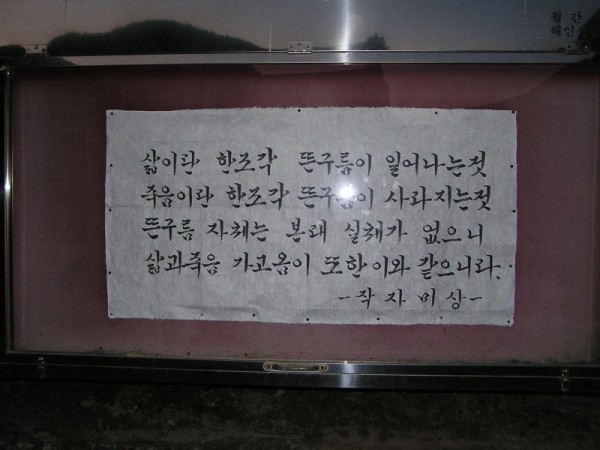 월간
해인
삶이란 한조각 뜬구름이 일어나는것
죽음이란 한조각 뜬구름이 사라지는것
뜬구름 자체는 본래 실체가 없으니
삶과죽음 가고옴이 또한 이와 같으니라.
-작자미상-